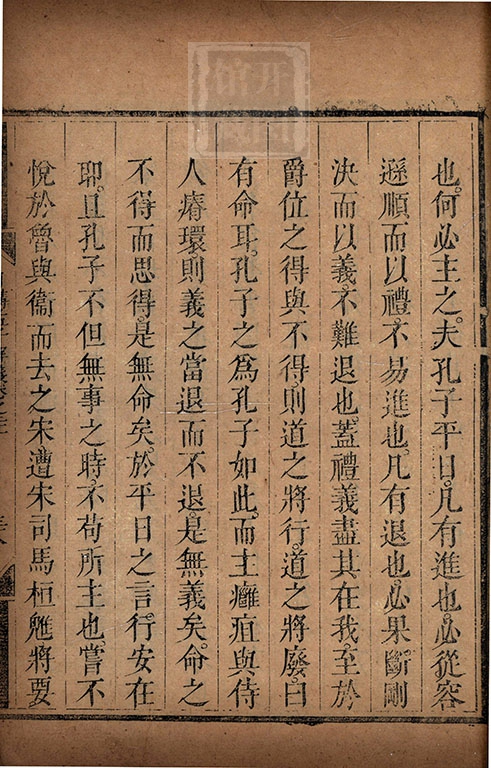 也何必主之夫孔子平日凡有進也必從容
遜順而以禮不易進也凡有退也必果斷剛
決而以義不難退也蓋禮義盡其在我至於
爵位之得與不得則道之將行道之將廢曰
有命耳孔子之爲孔子如此而主癰疽與侍
人瘠環則義之當退而不退是無義矣命之
不得而思得是無命矣於平日之言行安在
耶且孔子不但無事之時不苟所主也嘗不
悅於魯與衞而去之宋遭宋司馬桓魋將要